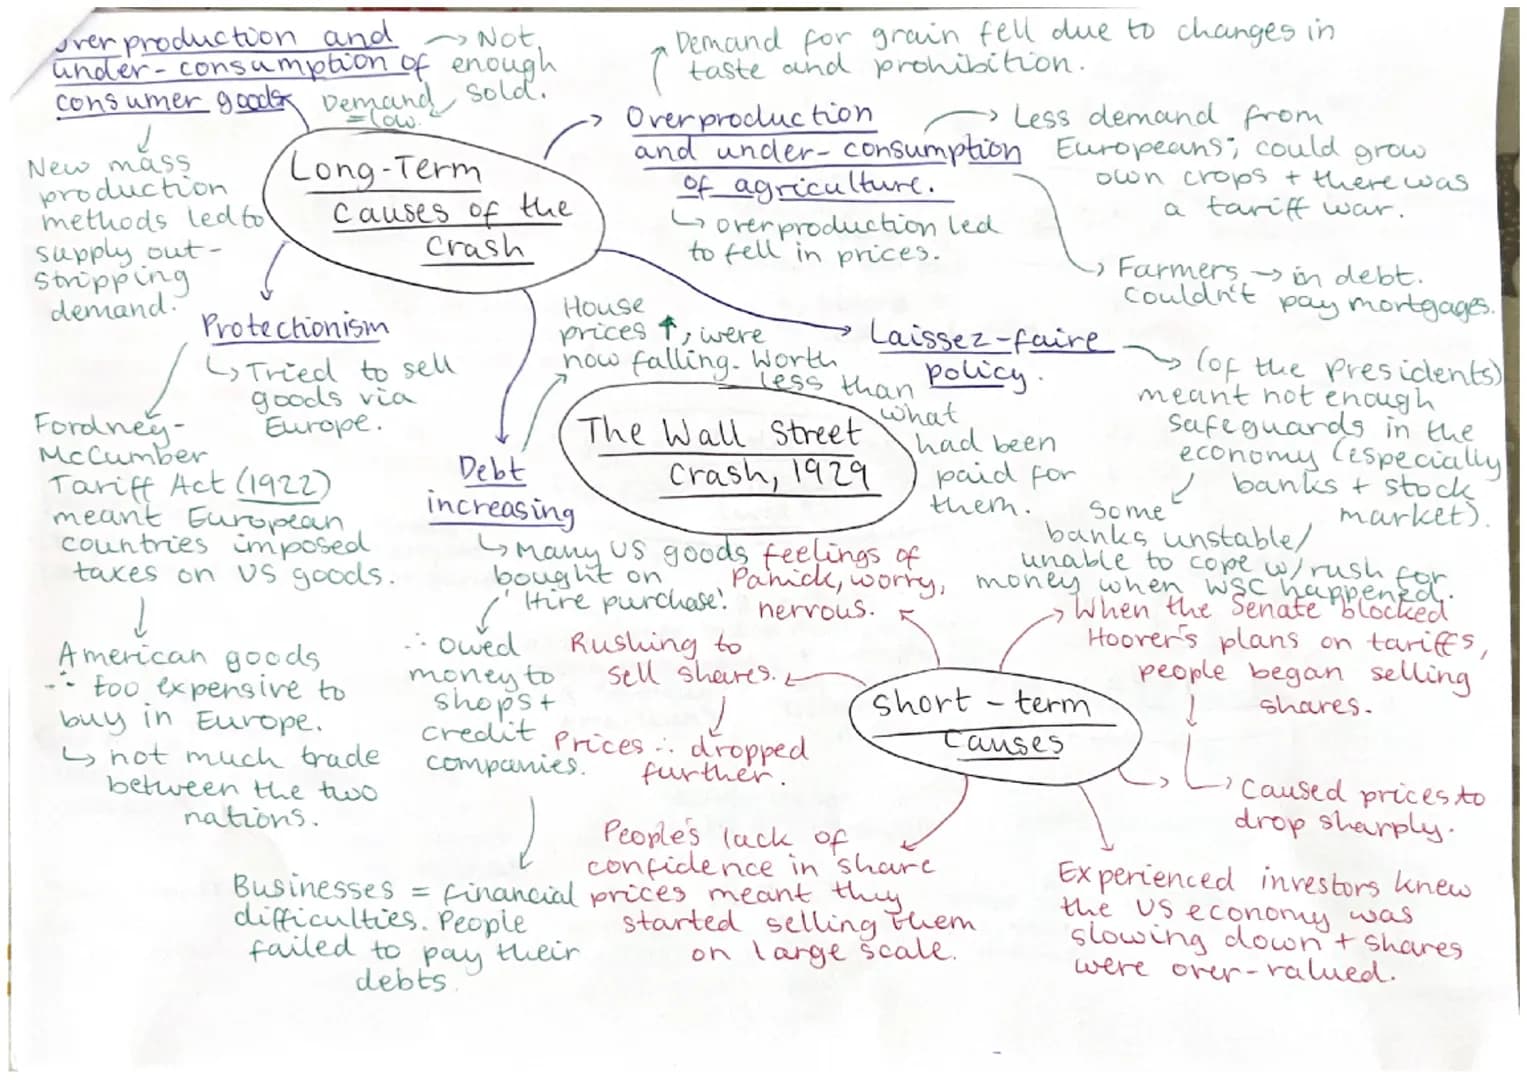 overproduction and
under-consumption of
consumer goods
→ Not
enough
sold.
Demand
= low.
New mass
production
methods led to
supply out-
stripping
demand.
Long-Term
causes of the
crash
Demand for grain fell due to changes in
taste and prohibition.
Overproduction
and under-consumption
of agriculture.
↳ overproduction led
to fell in prices.
→ Less demand from
Europeans; could grow
own crops + there was
a tariff war.
Farmers → in debt.
couldn't pay mortgages.
Protectionism
↳ Tried to sell
goods via
Europe.
Fordney-
McCumber
Tariff Act (1922)
meant European
countries imposed
taxes on US goods.
American goods
∴ too expensive to
buy in Europe.
↳ not much trade
between the two
nations.
House
prices ↑, were
now falling. Worth
less than
what
had been
paid for
them.
Laissez-faire
policy.
→ (of the Presidents)
meant not enough
safeguards in the
economy (especially
banks + stock
market).
Some
banks unstable/
unable to cope w/rush for
money when WSC happened.
The Wall Street
Crash, 1929
Debt
increasing
↳ Many US goods
bought on
'Hire purchase'.
∴ owed
money to
shops +
credit
companies.
Businesses = financial
difficulties. People
failed to pay their
debts.
feelings of
Panick, worry,
nervous.
Rushing to
sell shares.
Prices ∴ dropped
further.
short-term
causes
When the Senate blocked
Hoover's plans on tariffs,
people began selling
shares.
Caused prices to
drop sharply.
People's lack of
confidence in share
prices meant they
started selling them
on large scale.
Experienced investors knew
the US economy was
slowing down + shares
were over-valued.